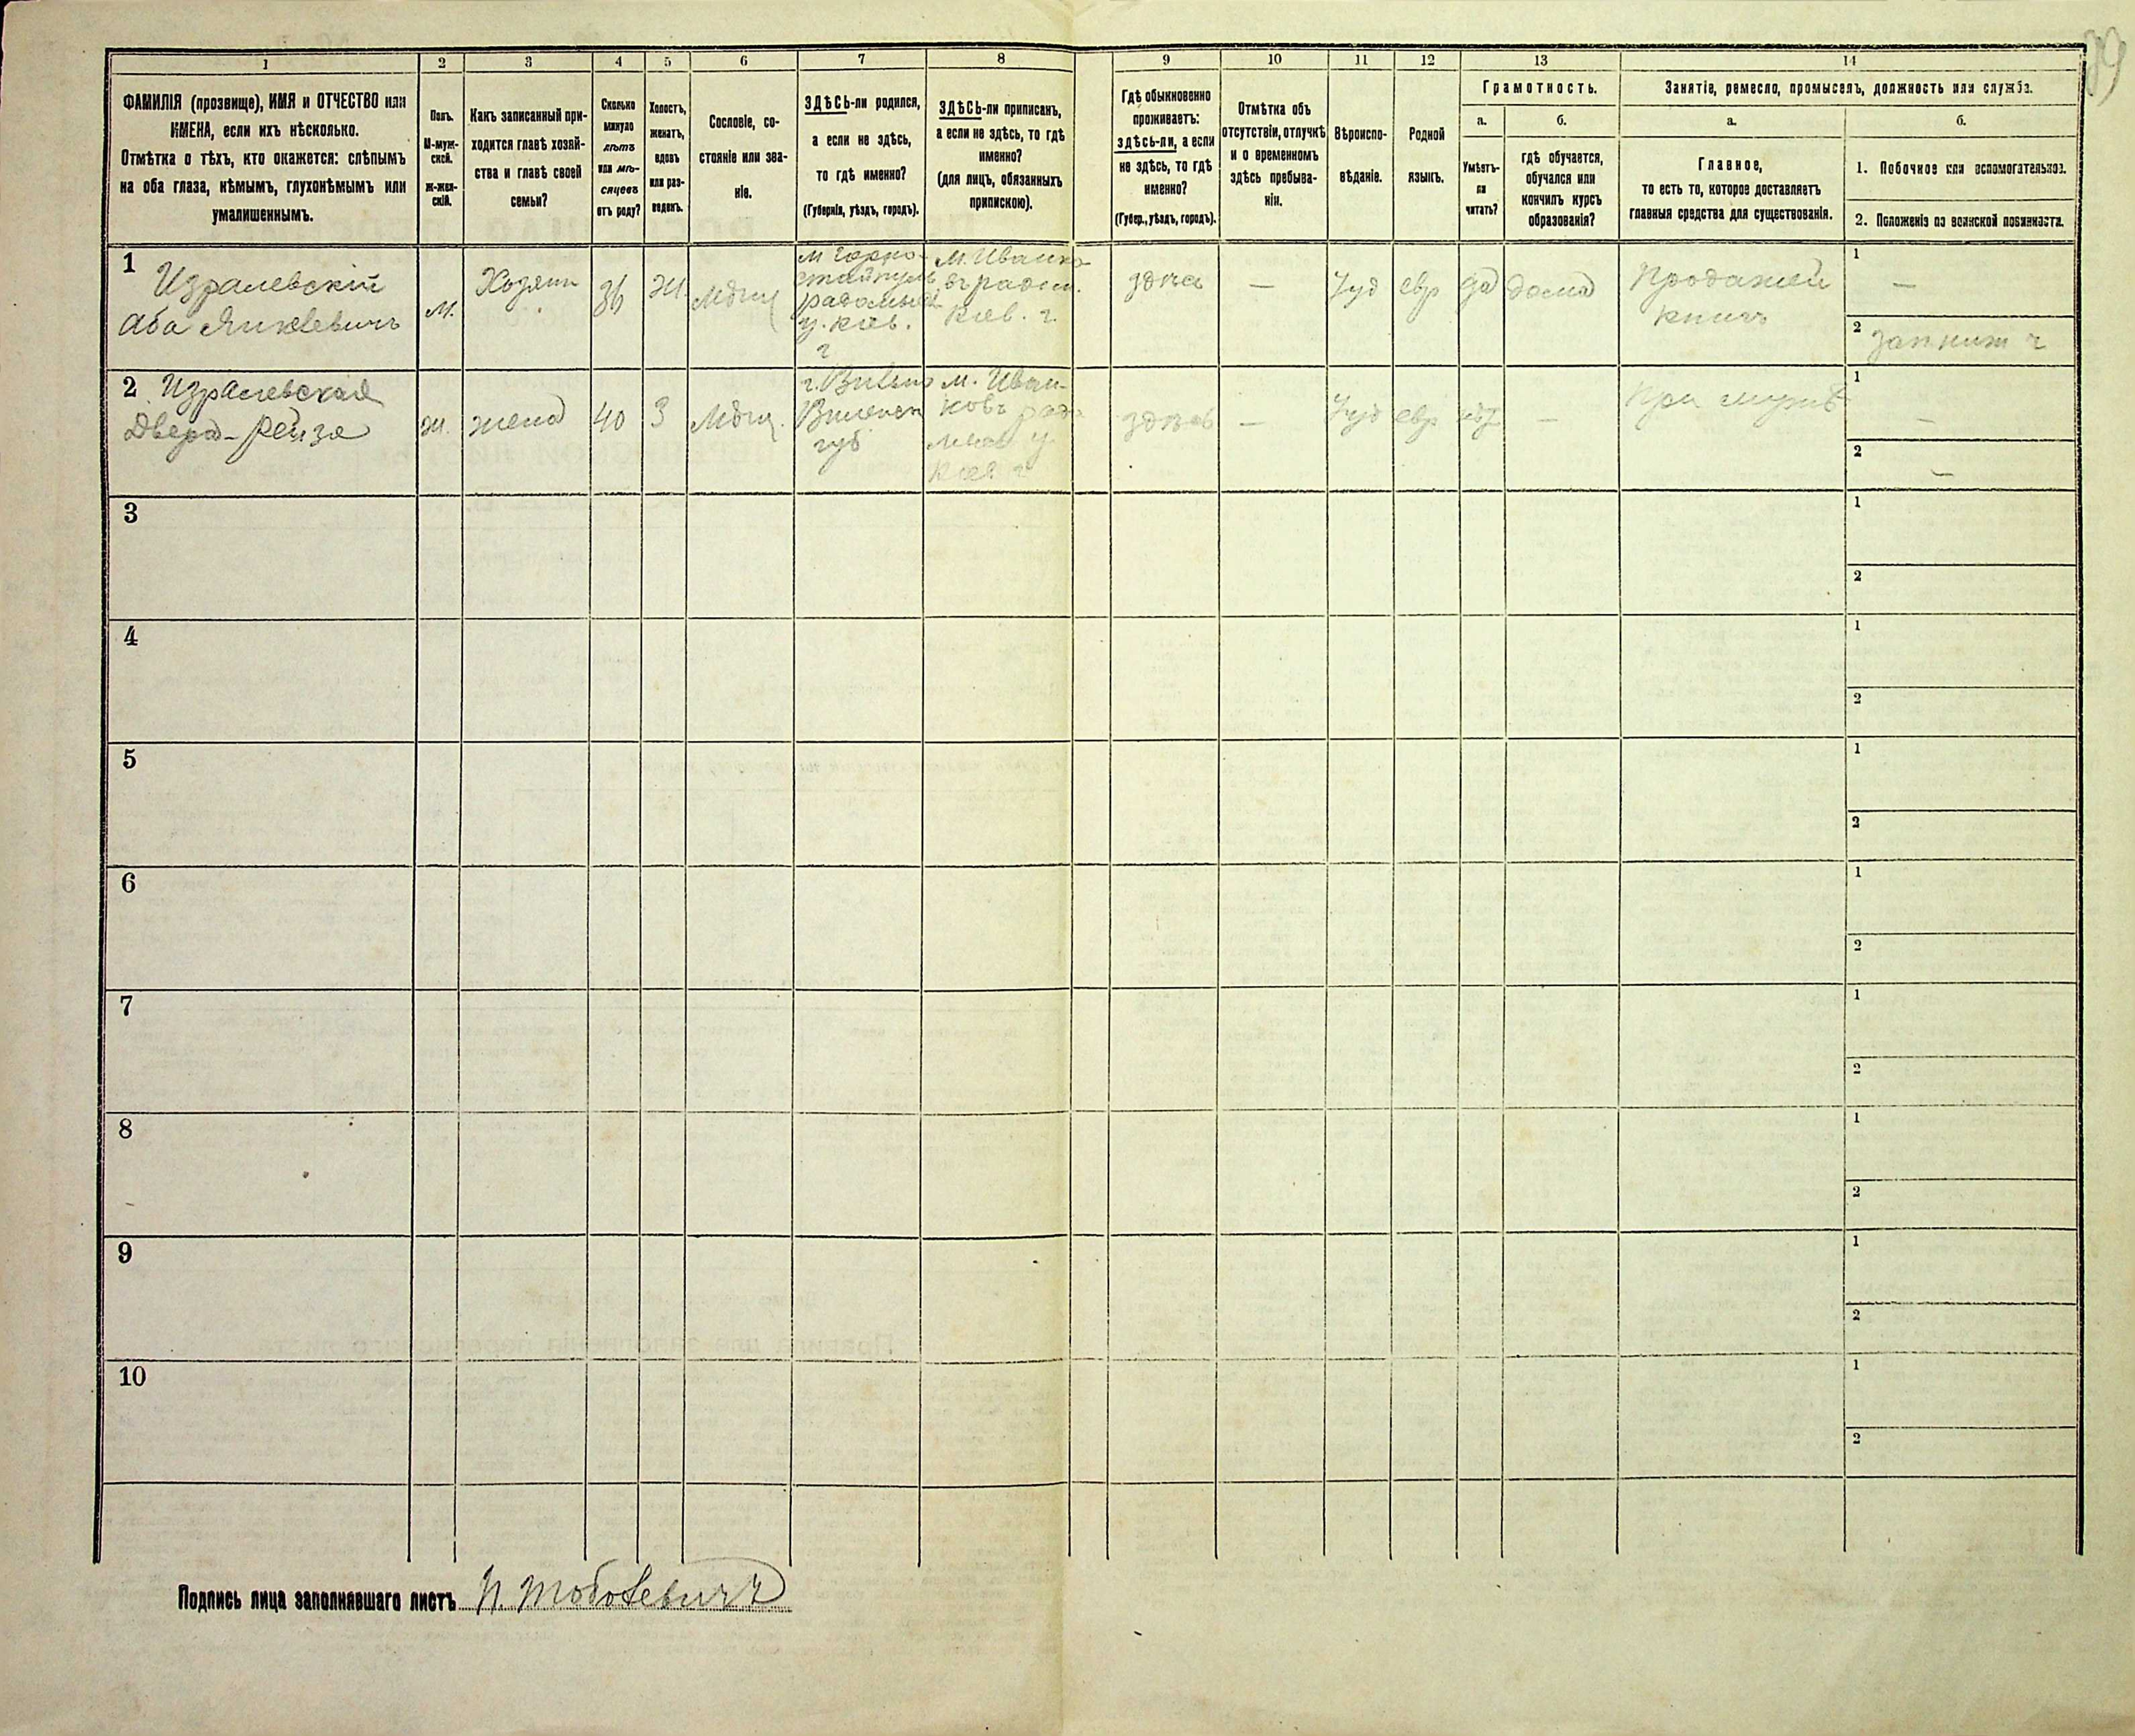 89
1
2
3
4
5
6
7
8
9
10
11
12
13
14
ФАМИЛІЯ (прозвище), ИМЯ и ОТЧЕСТВО или
ИМЕНА, если ихъ нѣсколько.
Отмѣтка о тѣхъ, кто окажется: слѣпымъ
на оба глаза, нѣмымъ, глухонѣмымъ или
умалишеннымъ.
Полъ.
М-муж-
ской.
Ж-жен-
скій.
Какъ записанный при-
ходится главѣ хозяй-
ства и главѣ своей
семьи?
Сколько
минуло
лѣтъ
или мѣ-
сяцевъ
отъ роду?
Холостъ,
женатъ,
вдовъ
или раз-
веденъ.
Сословіе, со-
стояніе или зва-
ніе.
ЗДѢСЬ-ли родился,
а если не здѣсь,
то гдѣ именно?
(Губернія, уѣздъ, городъ).
ЗДѢСЬ-ли приписанъ,
а если не здѣсь, то гдѣ
именно?
(для лицъ, обязанныхъ
припискою).
Гдѣ обыкновенно
проживаетъ:
здѣсь-ли, а если
не здѣсь, то гдѣ
именно?
(Губер., уѣздъ, городъ).
Отмѣтка объ
отсутствіи, отлучкѣ
и о временномъ
здѣсь пребыва-
ніи.
Вѣроиспо-
вѣданіе.
Родной
языкъ.
Грамотность.
а.
б.
Умѣетъ-
ли
читать?
гдѣ обучается,
обучался или
кончилъ курсъ
образованія?
Занятіе, ремесло, промыселъ, должность или служба.
а.
б.
Главное,
то есть то, которое доставляетъ
главныя средства для существованія.
1. Побочное или вспомогательное.
2. Положеніе по воинской повинности.
1
Изралевскій
Аба Янкелевичъ
м.
Хозяин
36
Ж.
Мѣщ
м Горно-
стайполь
радомысл
у. Кіев.
г
М. Иванко
въ радом.
Кіев. г.
здѣсь
—
Іуд
евр
да
дома
Продажей
книгъ
1
—
2
2
Изралевская
Двера-Рейза
ж.
жена
40
З
Мѣщ.
г. Вильно
Виленск
губ
м. Иван-
ковъ радо
мысл у.
Кіев г
здѣсь
—
Іуд
евр
нѣт
—
При мужѣ
1
—
2
—
3
1
2
4
1
2
5
1
2
6
1
2
7
1
2
8
1
2
9
1
2
10
1
2
Подпись лица заполнявшаго листъ